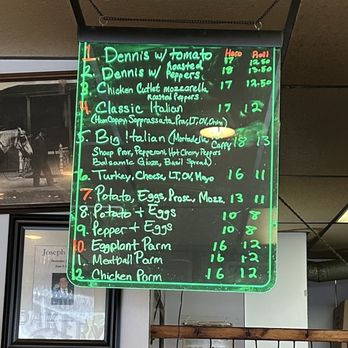 Hero Roll
1. Dennis w/ tomato 17 12.50
2 Dennis w/ Roasted Peppers. 18 13.50
3 Chicken Cutlet mozzarella 17 12.50
Roasted Peppers.
4 Classic Italian 17 12
(Ham Cappy, Soppressata, Prov, LT, OV,
5. Big Italian (Mortadella Cappy 18 13
Sharp Prov, Pepperoni, Hot Cherry Peppers
Balsamic Glaze, Basil Spread)
6. Turkey, Cheese LT, OV, Mayo 16 11
7. Potato, Eggs, Prosc, Mozz 13 11
8. Potato + Eggs 10 8
9. Pepper + Eggs 10 8
10. Eggplant Parm 16 12
1. Meatball Parm 16 12
2 Chicken Parm 16 12
Joseph